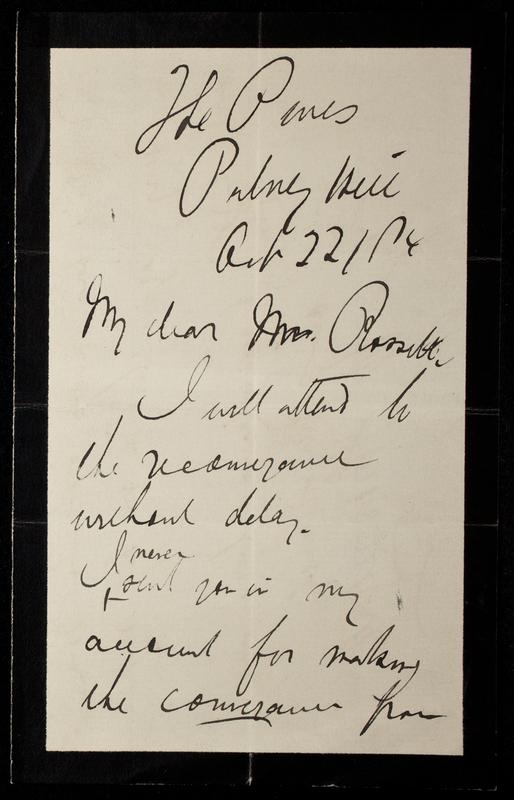 The Pines
Putney Hill
Oct 22/84
My dear Mrs. Rossetti,
I will attend to
the reconveyance
without delay.
I never
sent you in my
account for making
the conveyance from